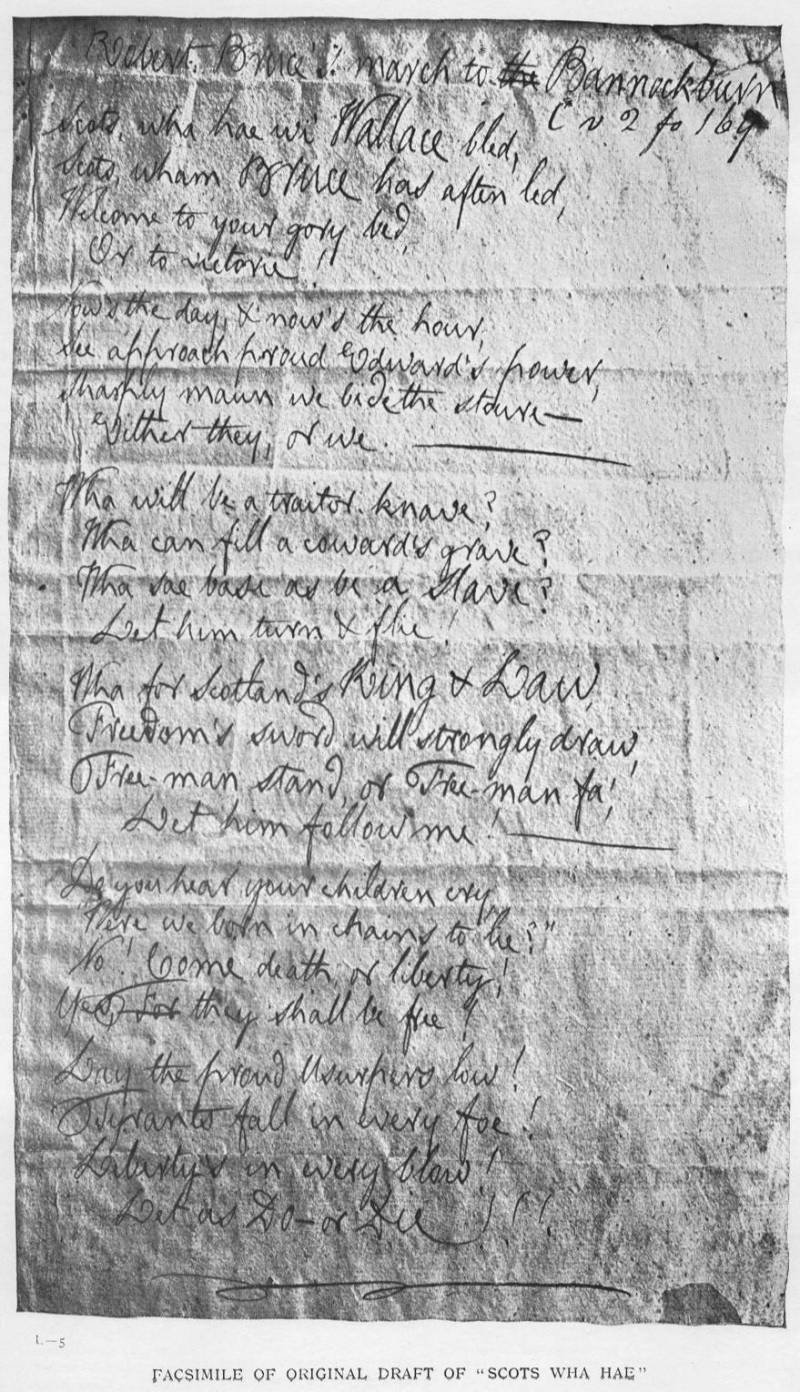 Robert Bruce's march to the Bannockburn
C v 2 fo 169
Scots, wha hae wi' Wallace bled,
Scots, wham Bruce has aften led,
Welcome to your gory bed,
Or to victorie!
Now's the day, & now's the hour,
See approach proud Edward's power,
Sharply maun we bide the stoure—
Either they, or we.
Wha will be a traitor knave?
Wha can fill a coward's grave?
Wha sae base as be a Slave?
Let him turn & flie!
Wha for Scotland's King & Law,
Freedom's sword will strongly draw,
Free-man stand, or Free-man fa',
Let him follow me!
Do you hear your children cry
"Were we born in chains to lie?"
No! Come death, or liberty!
Yes, For they shall be free!
Lay the proud Usurpers low!
Tyrants fall in every foe!
Liberty's in every blow!
Let us Do—or Die!!!
L—5
FACSIMILE OF ORIGINAL DRAFT OF "SCOTS WHA HAE"